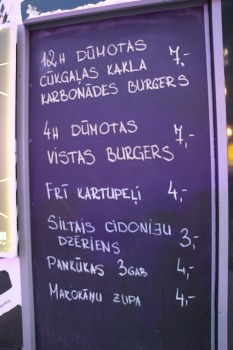 12H DŪMOTAS 7,-
CŪKGAĻAS KAKLA
KARBONĀDES BURGERS
4H DŪMOTAS 7,-
VISTAS BURGERS
FRĪ KARTUPEĻI 4,-
SILTAIS CIDONIJU 3,-
DZĒRIENS
PANKŪKAS 3GAB 4,-
MAROKĀŅU ZUPA 4,-